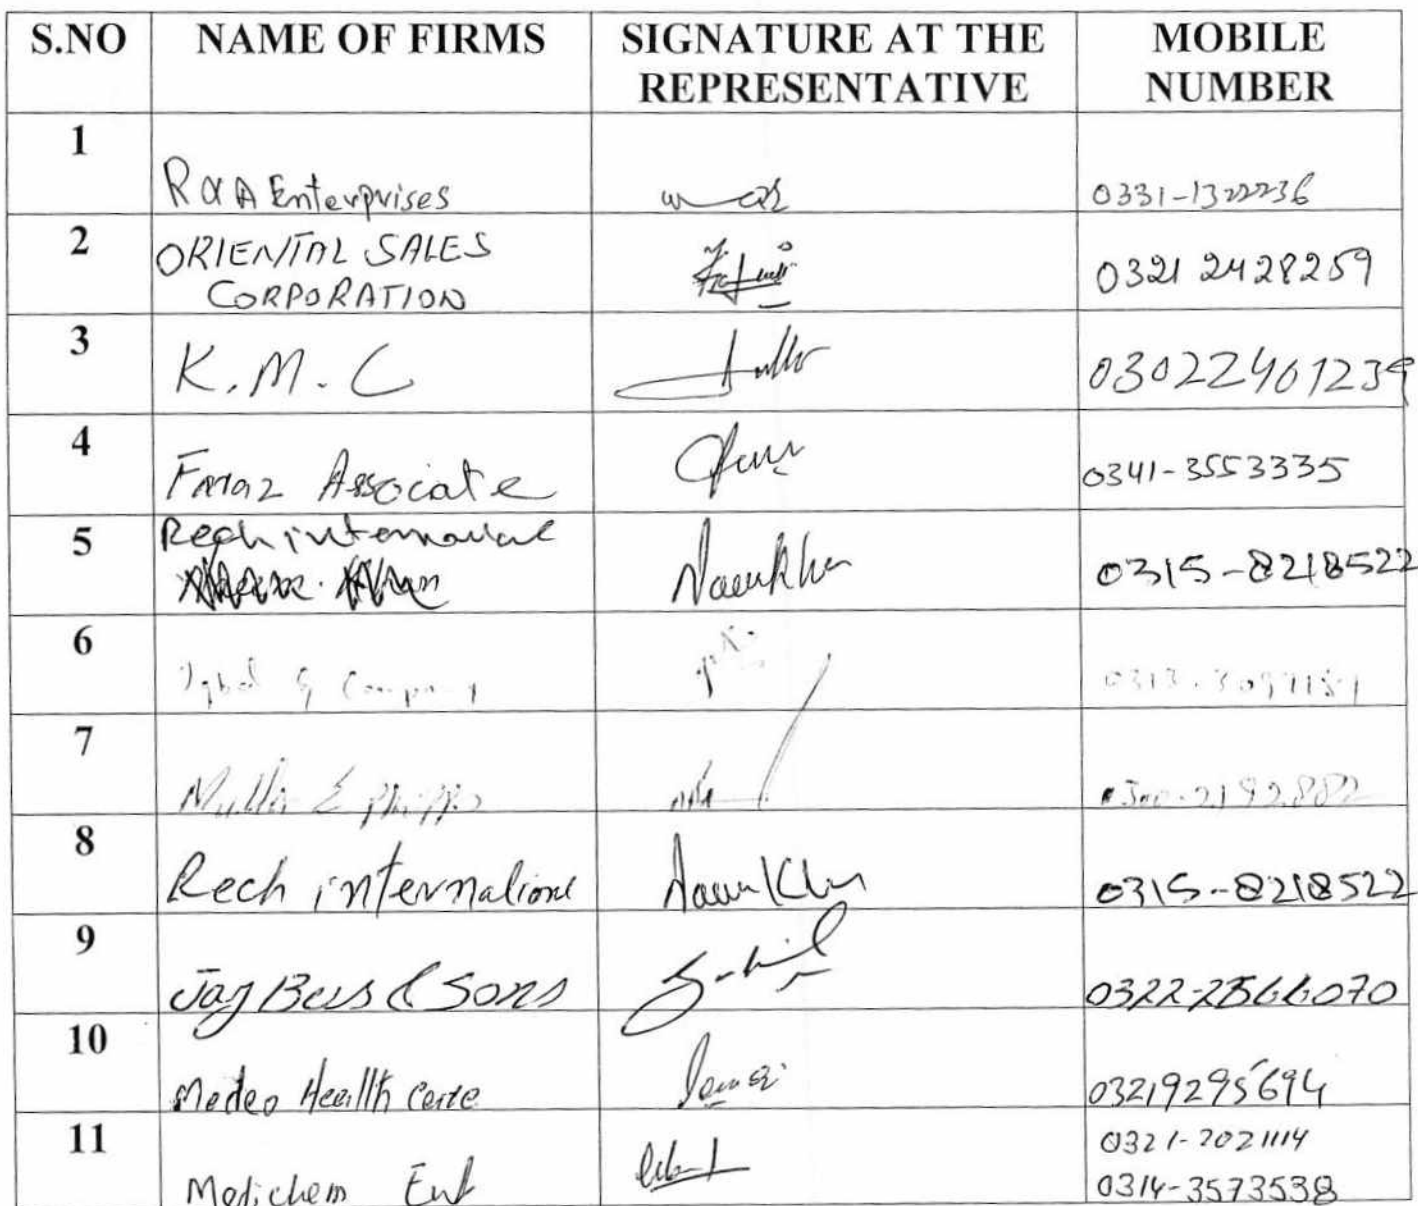 S.NO NAME OF FIRMS SIGNATURE AT THE REPRESENTATIVE MOBILE NUMBER
1 R & A Enterprises 0331-1322236
2 ORIENTAL SALES CORPORATION 0321 2428259
3 K.M.C 03022401239
4 Faraz Associate 0341-3553335
5 Rech international Naeem Khan 0315-8218522
6 Iqbal & Company
7 Muller & Phipps 0300-2192882
8 Rech international Naeem Khan 0315-8218522
9 Jay Bees & Sons 0322-2566070
10 Medeo Health Care 03219295694
11 Medichem Ent 0321-2021114
0314-3573538